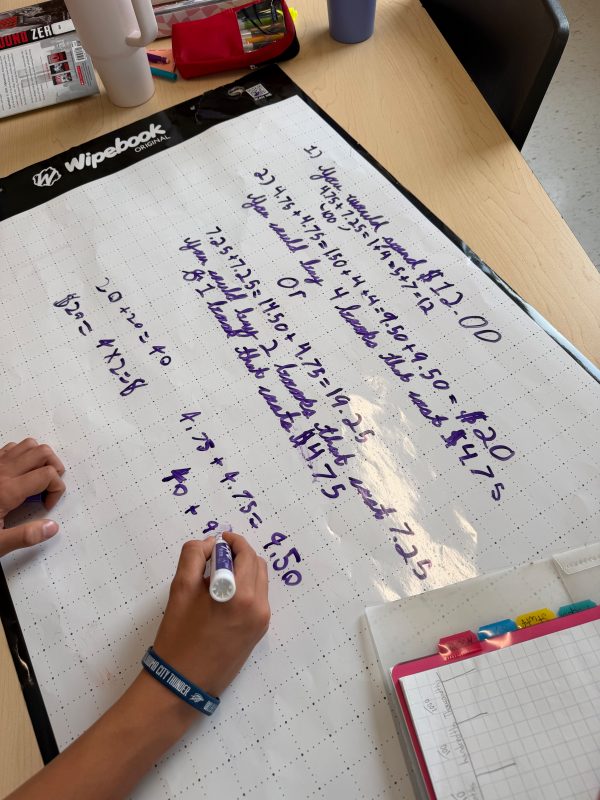 ZER
Wipebook
ORIGINAL
1) You would spend $12.00
4.75+7.25=1+4=5+7=12
100
2) 4.75+4.75=1.50+4+4=9.50+9.50=$20
You could buy 4 books that cost $4.75
Or
7.25+7.25=14.50+4.75=19.25
You could buy 2 books that cost 7.25
& 1 book that costs $4.75
20+20=40
$20= 4×2=8
4.75+4.75=9.50
40+9
CITY THUNDER